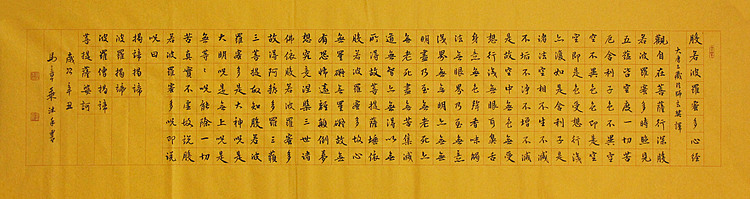 般若波羅蜜多心經
大唐三藏法師玄奘譯
觀自在菩薩行深般
若波羅蜜多時照見
五蘊皆空度一切苦
厄舍利子色不異空
空不異色色即是空
空即是色受想行識
亦復如是舍利子是
諸法空相不生不滅
不垢不淨不增不減
是故空中無色無受
想行識無眼耳鼻舌
身意無色聲香味觸
法無眼界乃至無意
識界無無明亦無無
明盡乃至無老死亦
無老死盡無苦集滅
道無智亦無得以無
所得故菩提薩埵依
般若波羅蜜多故心
無罣礙無罣礙故無
有恐怖遠離顛倒夢
想究竟涅槃三世諸
佛依般若波羅蜜多
故得阿耨多羅三藐
三菩提故知般若波
羅蜜多是大神咒是
大明咒是無上咒是
無等〻咒能除一切
苦真實不虛故說般
若波羅蜜多咒即說
咒曰
揭諦揭諦
波羅揭諦
波羅僧揭諦
菩提薩婆訶
歲次辛丑